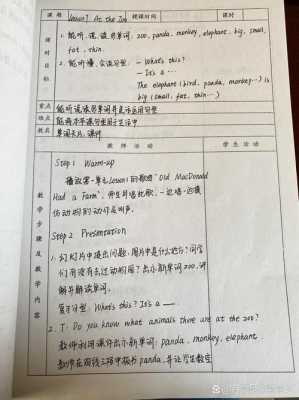 课题 Lesson1 At the Zoo 授课时间 课时
课时目标
1. 能听、说、读、写单词: zoo, panda, monkey, elephant, big, small,
fat, thin.
2. 能听懂、会说句型: - What's this?
- It's a …
The elephant (bird, panda, monkey…) is
big (small, fat, thin…)
重点 能听说读写单词并灵活运用句型
难点 能将本课句型用于生活中
教具 单词卡片、课件
教师活动 学生活动
教学步骤及教学内容
Step 1 Warm-up
播放第一单元Lesson1的歌曲"Old MacDonald
Had a Farm", 师生共唱此歌, 一边唱一边模
仿动物的动作及叫声.
Step 2 Presentation
1. 幻灯片中提出问题, 图片中是什么地方? 同学
们有没有去过动物园? 出示新单词zoo, 讲
解并解读单词.
复习句型: What's this? It's a __.
2. T: Do you know what animals there are at the zoo?
教师利用课件出示新单词: panda, monkey, elephant.
教师在四线三格中板书panda, 并让学生数空